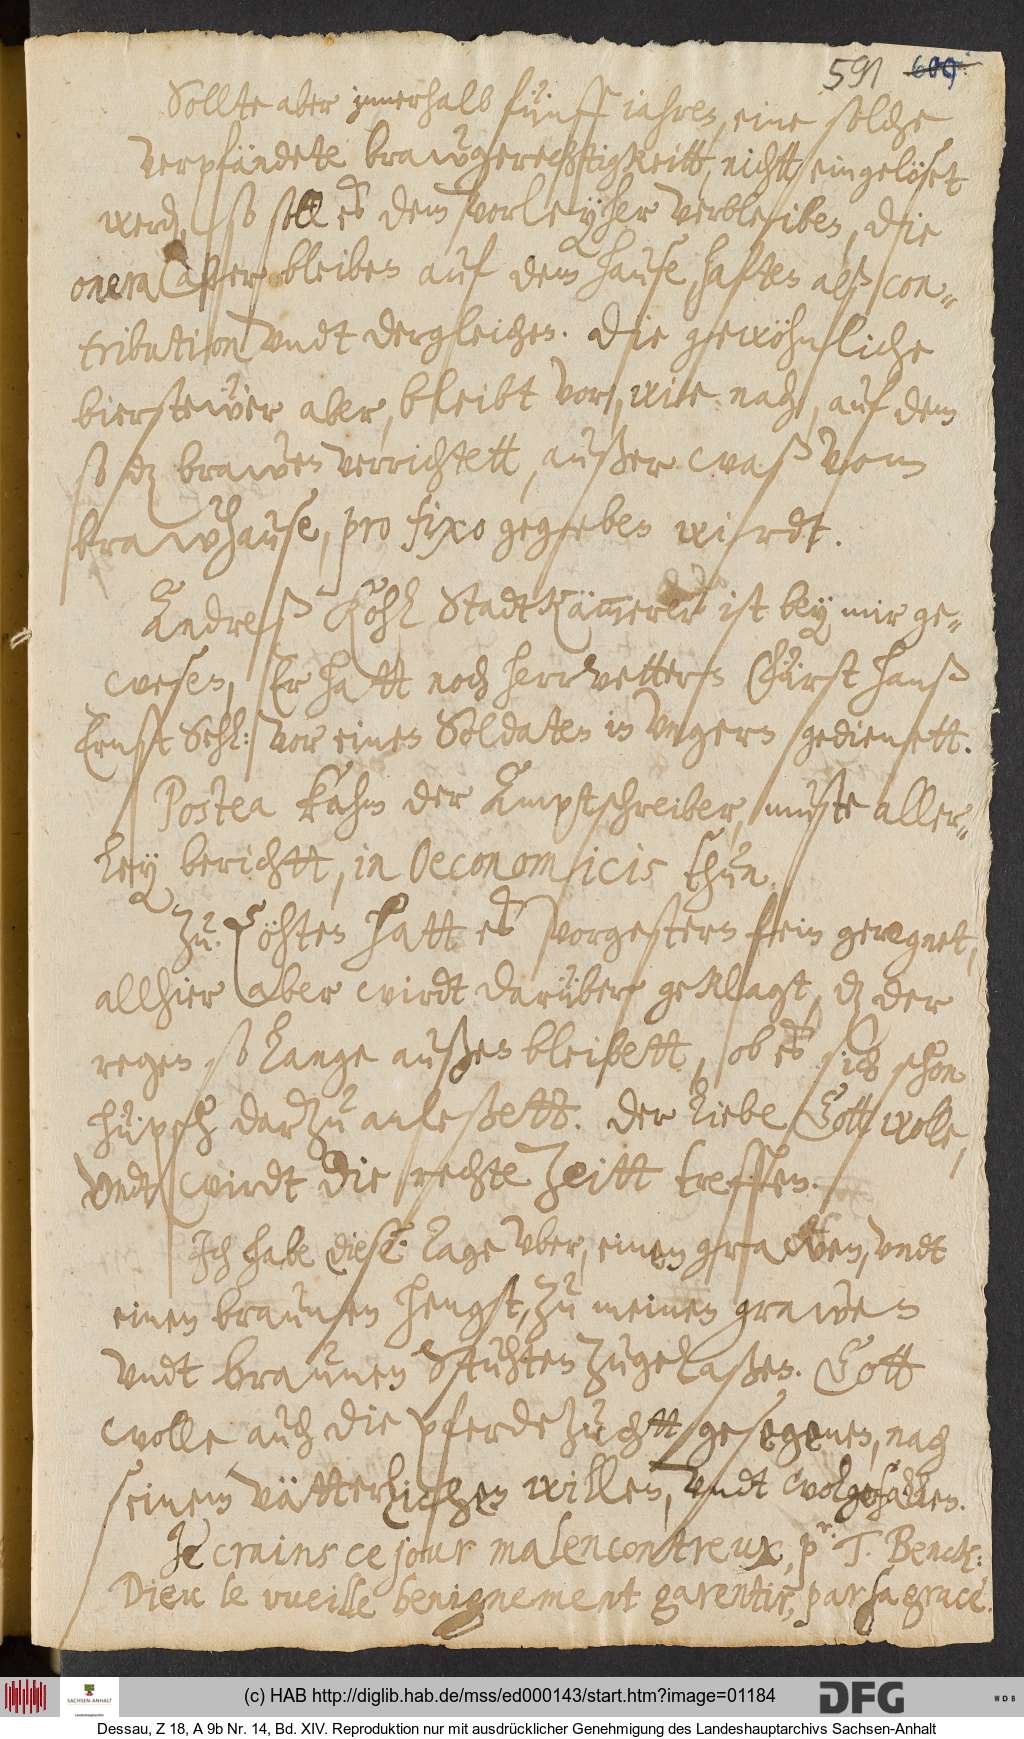 591 609
Sollte aber innerhalb fünff jahren, eine solche
verpfändete brawgerechttigkeitt, nichtt eingelöset
werd, so soll es dem vorleÿher verbleiben, die
onera aber bleiben auf dem hause, haften alß con-
tribution vndt dergleichen. Die gewöhnliche
biersteẅer aber, bleibt vor, wie nach, auf dem
so dz brawen verrichtett, außer waß vom
brawhause, pro fixo gegeben wirdt.
Andreß Röhl StadtKäm̄erer ist beÿ mir ge-
wesen, Er hatt noch herrvetters Fürst Hanß
Ernst Sehl: vor einen Soldaten in Vngern gedienett.
Postea kahm der Amptschreiber, muste aller-
leÿ berichtt, in Oeconomicis thun.
Zu Cöhten hatt es vorgestern fein geregnet,
allhier aber wirdt darüber geklagt, dz der
regen so lange außen bleibett, ob es sich schon
hüpsch darzu anleßett. Der liebe Gott wolle,
vndt wirdt die rechte Zeitt treffen.
Ich habe diese tage vber, einen grawen, vndt
einen braunen hengst, zu meinen grawen
vndt braunen Stuhten zugelaßen. Gott
wolle auch die pferdezuchtt gesegenen, nach
seinem vätterlichen willen, vndt wolgefallen.
Je crains ce jour malencontreux, pr. T. Benck:
Dieu le vueille benignement garentir, par sa grace.
(c) HAB http://diglib.hab.de/mss/ed000143/start.htm?image=01184
SACHSEN-ANHALT
DFG
WDB
Dessau, Z 18, A 9b Nr. 14, Bd. XIV. Reproduktion nur mit ausdrücklicher Genehmigung des Landeshauptarchivs Sachsen-Anhalt